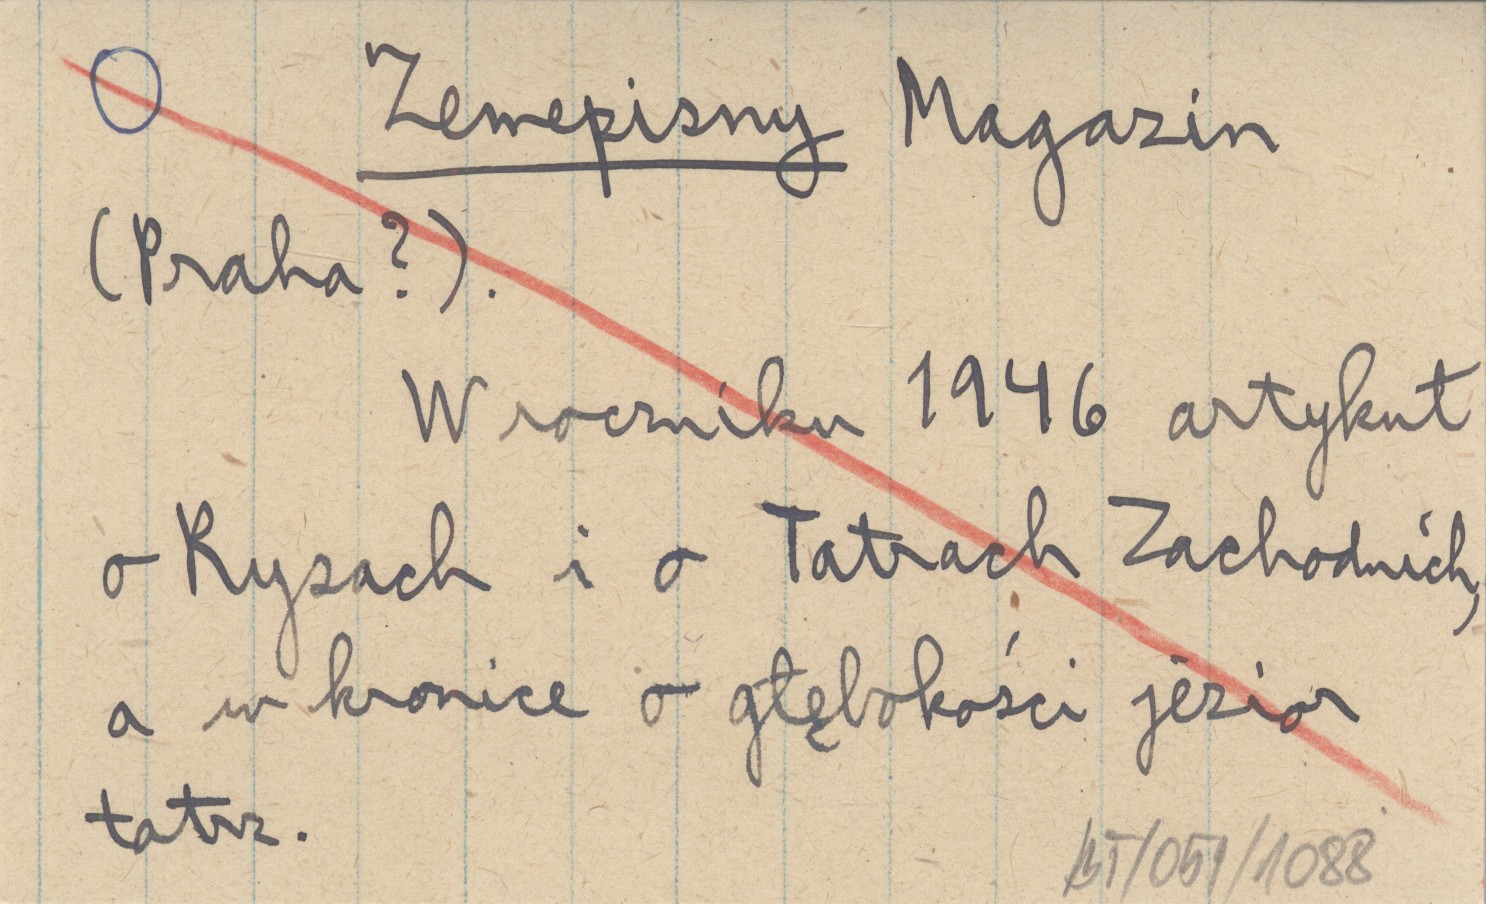 Zemepisny Magazin
(Praha?).
W roczniku 1946 artykuł
o Rysach i o Tatrach Zachodnich,
a w kronice o głębokości jezior
tatrz.
BT/051/1088